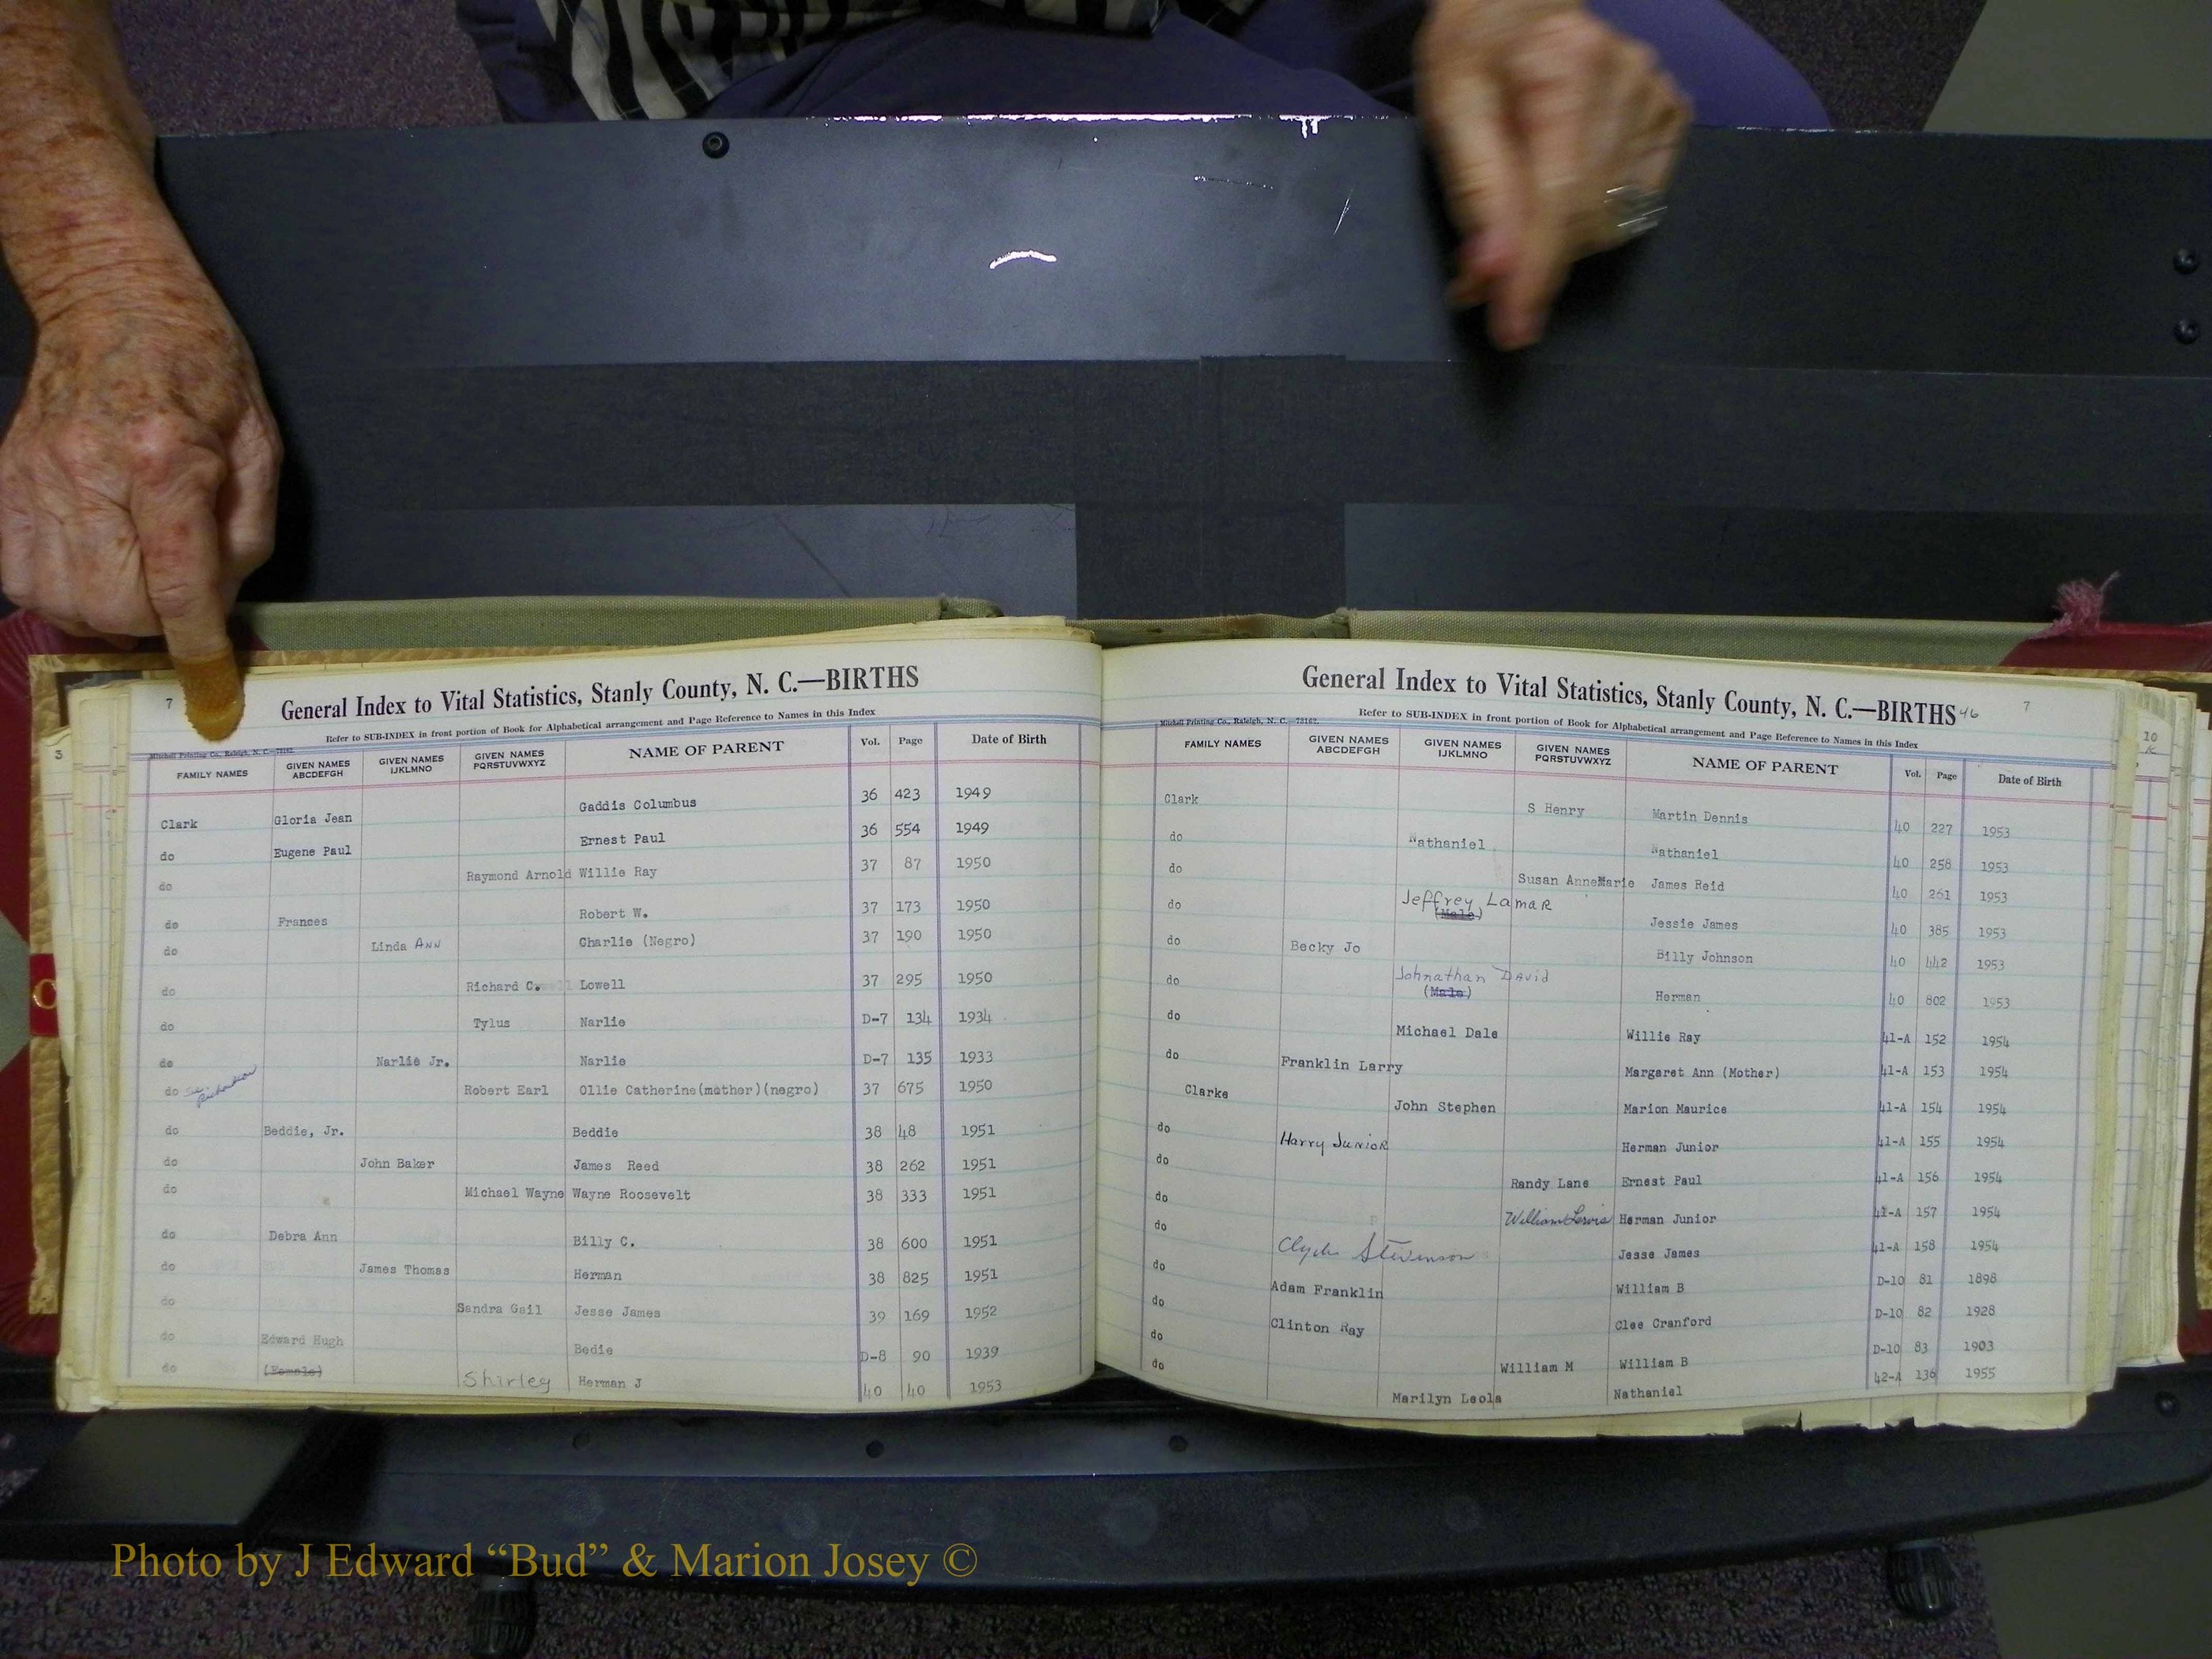 7
General Index to Vital Statistics, Stanly County, N. C.—BIRTHS
Refer to SUB-INDEX in front portion of Book for Alphabetical arrangement and Page Reference to Names in this Index
Mitchell Printing Co., Raleigh, N. C.—73162.
FAMILY NAMES GIVEN NAMES ABCDEFGH GIVEN NAMES IJKLMNO GIVEN NAMES PQRSTUVWXYZ NAME OF PARENT Vol. Page Date of Birth
Clark Gloria Jean Gaddis Columbus 36 423 1949
do Eugene Paul Ernest Paul 36 554 1949
do Raymond Arnold Willie Ray 37 87 1950
do Frances Robert W. 37 173 1950
do Linda Ann Charlie (Negro) 37 190 1950
do Richard C. Lowell 37 295 1950
do Tylus Narlie D-7 134 1934
do Narlie Jr. Narlie D-7 135 1933
do See Richardson Robert Earl Ollie Catherine(mother)(negro) 37 675 1950
do Beddie, Jr. Beddie 38 48 1951
do John Baker James Reed 38 262 1951
do Michael Wayne Wayne Roosevelt 38 333 1951
do Debra Ann Billy C. 38 600 1951
do James Thomas Herman 38 825 1951
do Sandra Gail Jesse James 39 169 1952
do Edward Hugh Bedie D-8 90 1939
do (Female) Shirley Herman J 40 40 1953
General Index to Vital Statistics, Stanly County, N. C.—BIRTHS 46 7
Refer to SUB-INDEX in front portion of Book for Alphabetical arrangement and Page Reference to Names in this Index
Mitchell Printing Co., Raleigh, N. C.—73162.
FAMILY NAMES GIVEN NAMES ABCDEFGH GIVEN NAMES IJKLMNO GIVEN NAMES PQRSTUVWXYZ NAME OF PARENT Vol. Page Date of Birth
Clark S Henry Martin Dennis 40 227 1953
do Nathaniel Nathaniel 40 258 1953
do Susan AnneMarie James Reid 40 261 1953
do Jeffrey Lamar (Male) Jessie James 40 385 1953
do Becky Jo Billy Johnson 40 442 1953
do Johnathan David (Male) Herman 40 802 1953
do Michael Dale Willie Ray 41-A 152 1954
do Franklin Larry Margaret Ann (Mother) 41-A 153 1954
Clarke John Stephen Marion Maurice 41-A 154 1954
do Harry Junior Herman Junior 41-A 155 1954
do Randy Lane Ernest Paul 41-A 156 1954
do William Lewis Herman Junior 41-A 157 1954
do Clyde Stevenson Jesse James 41-A 158 1954
do Adam Franklin William B D-10 81 1898
do Clinton Ray Clee Cranford D-10 82 1928
do William M William B D-10 83 1903
do Marilyn Leola Nathaniel 42-A 136 1955
3
10
K
C
Photo by J Edward “Bud” & Marion Josey ©